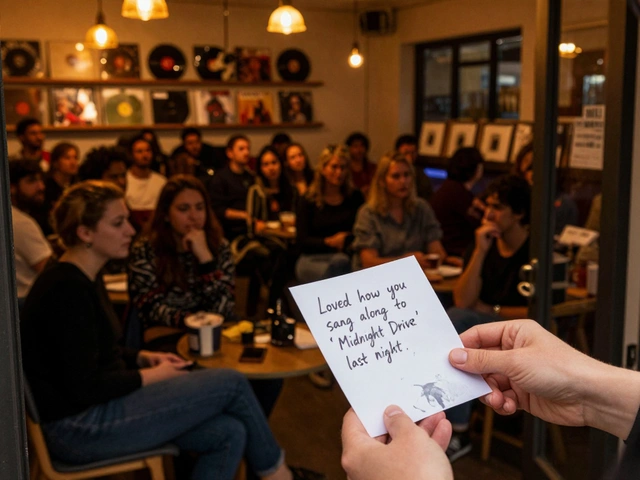 Loved how you
sang along to
'Midnight Drive'
last night.